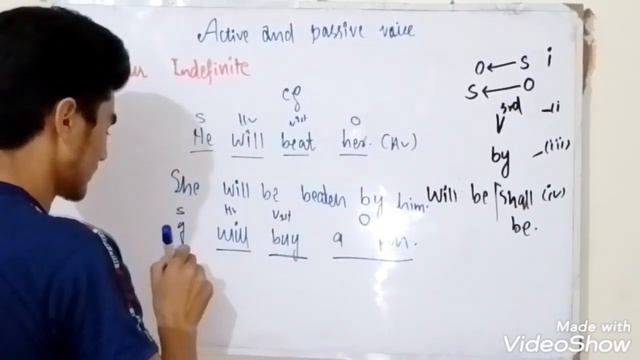 Active and passive voice
Indefinite
O ← S i
S ← O
3rd
V -ii
by -(iii)
will be / shall (iv)
be.
cf
S Hv V1st O
He will beat her. (Av)
She will be beaten by him.
S Hv V1st O
will buy a
Made with
VideoShow